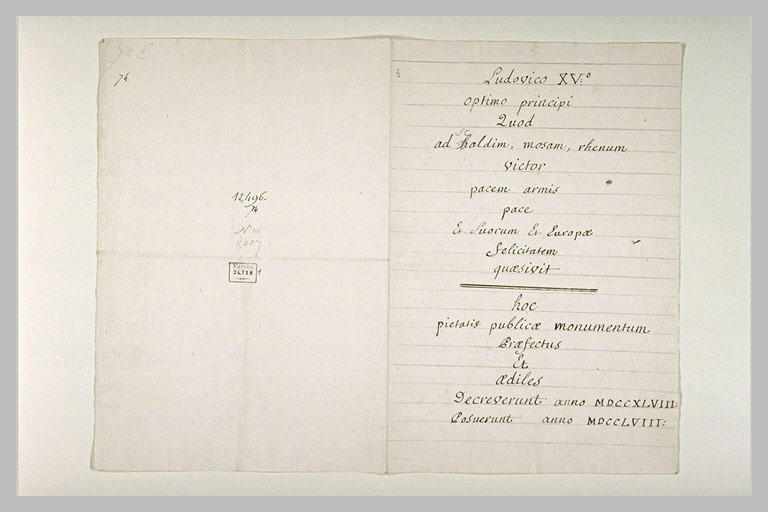 74
12496.
74
24718
Ludovico XV.º
optimo principi
Quod
ad Scaldim, mosam, rhenum
victor
pacem armis
pace
Et Suorum Et Europæ
felicitatem
quæsivit
hoc
pietatis publicæ monumentum
Præfectus
Et
ædiles
Decreverunt anno MDCCXLVIII:
Posuerunt anno MDCCLVIII: